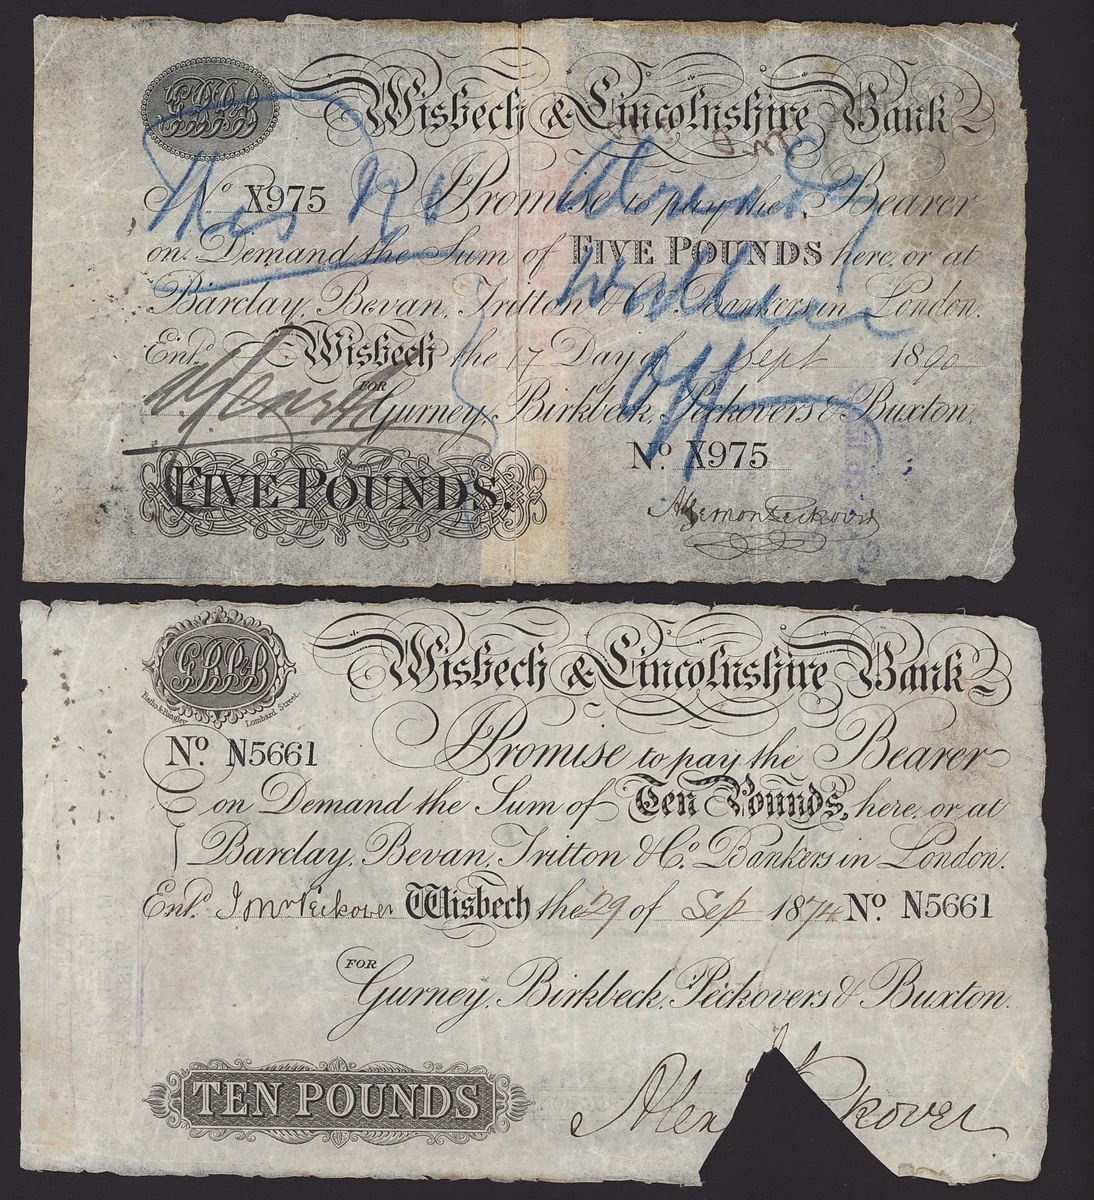 Wisbech & Lincolnshire Bank
No. X975 I Promise to pay the Bearer
on Demand the Sum of FIVE POUNDS here, or at
Barclay, Bevan, Tritton & Co. Bankers in London.
Entd. Wisbech the 17 Day of Sept 1890
FOR
Gurney, Birkbeck, Peckovers & Buxton.
No. X975
FIVE POUNDS.
Algernon Peckover
This No already
written
Off
Wisbech & Lincolnshire Bank
Batho & Bingley Lombard Street.
No. N5661 I Promise to pay the Bearer
on Demand the Sum of Ten Pounds, here, or at
Barclay, Bevan, Tritton & Co. Bankers in London.
Entd. Wisbech the 29 of Sep 1874 No. N5661
FOR
Gurney, Birkbeck, Peckovers & Buxton.
TEN POUNDS
Alex kover